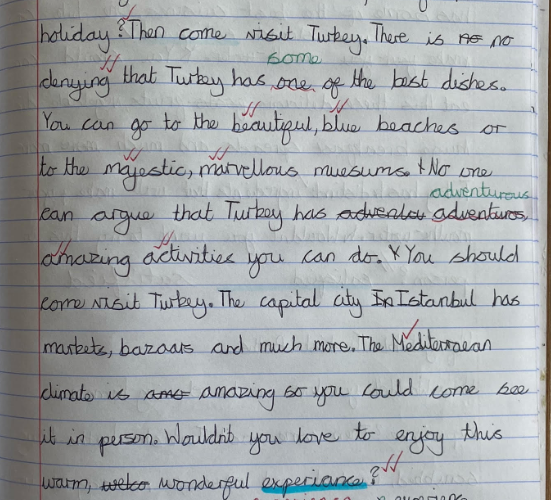 holiday? Then come visit Turkey. There is no no
some
denying that Turkey has one of the best dishes.
You can go to the beautiful, blue beaches or
to the majestic, marvellous muesums. No one
adventurous
can argue that Turkey has adventures,
amazing activities you can do. You should
come visit Turkey. The capital city In Istanbul has
markets, bazaars and much more. The Mediterraean
climate is amazing so you could come see
it in person. Wouldn't you love to enjoy this
warm, welco wonderful experiance?